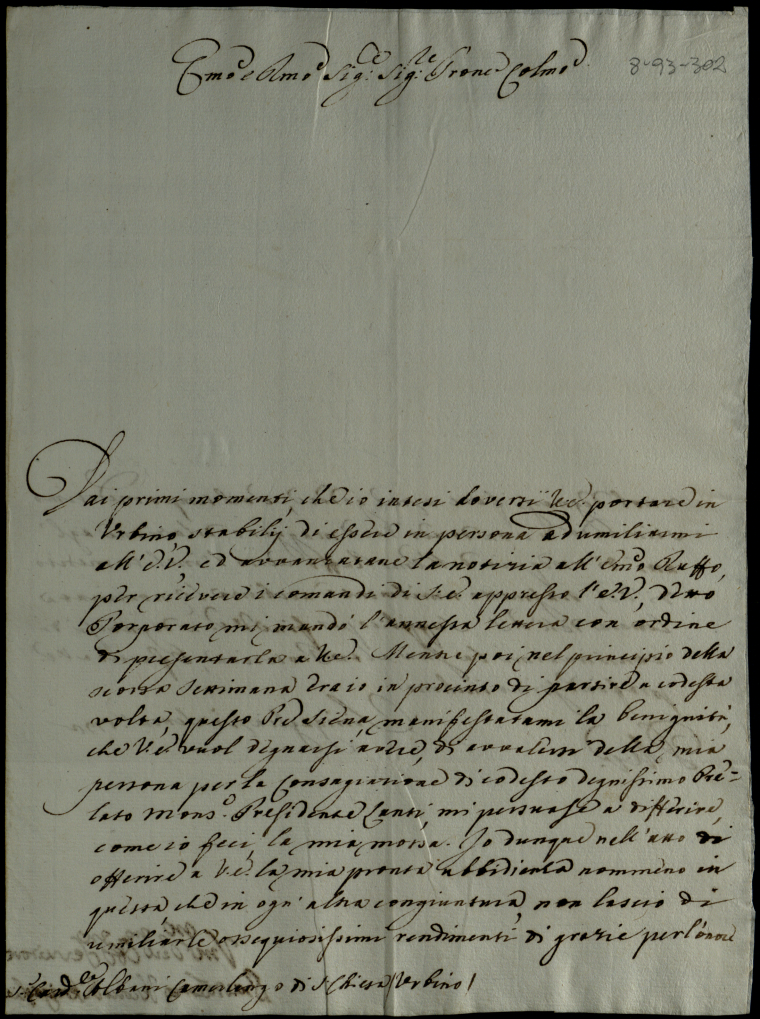 Emo e Rmo Sig.re Sig.re Prone Colmo
8-93-302
Dai primi momenti, che io intesi doversi V.E. portare in
Urbino, stabilij di essere in persona ad umiliarmi
all'E.V. ed avvanzatane la notizia all'Emo Ruffo,
per ricevere i comandi di S.E. appresso l'E.V., detto
Porporato mi mandò l'annessa lettera con ordine
di presentarla a V.E. Mentre poi nel principio della
scorsa settimana ero io in procinto di partire a codesta
volta, questo Pre Siena, manifestatami la benignità,
che V.E. vuol degnarsi avere, di avvalersi della mia
persona per la Consagrazione di codesto degnissimo Pre=
lato Monsr. Presidente Canti, mi persuase a differire,
come io feci, la mia mossa. Io dunque nell'atto di
offerire a V.E. la mia pronta ubbidienza nommeno in
questa che in ogn'altra congiuntura, non lascio di
umiliarle ossequiosissimi rendimenti di grazie per l'onore
S.r Card.le Albani Camerlengo di S. Chiesa / Urbino /